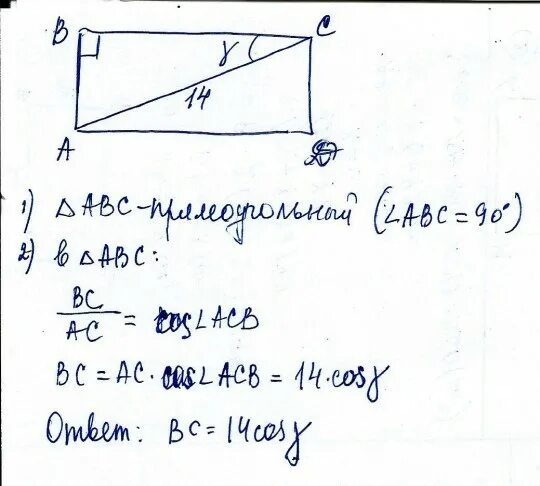 B C
γ
14
A D
1) △ABC - прямоугольный (∠ABC = 90°)
2) в △ABC:
BC/AC = cos∠ACB
BC = AC · cos∠ACB = 14 · cosγ
Ответ: BC = 14cosγ